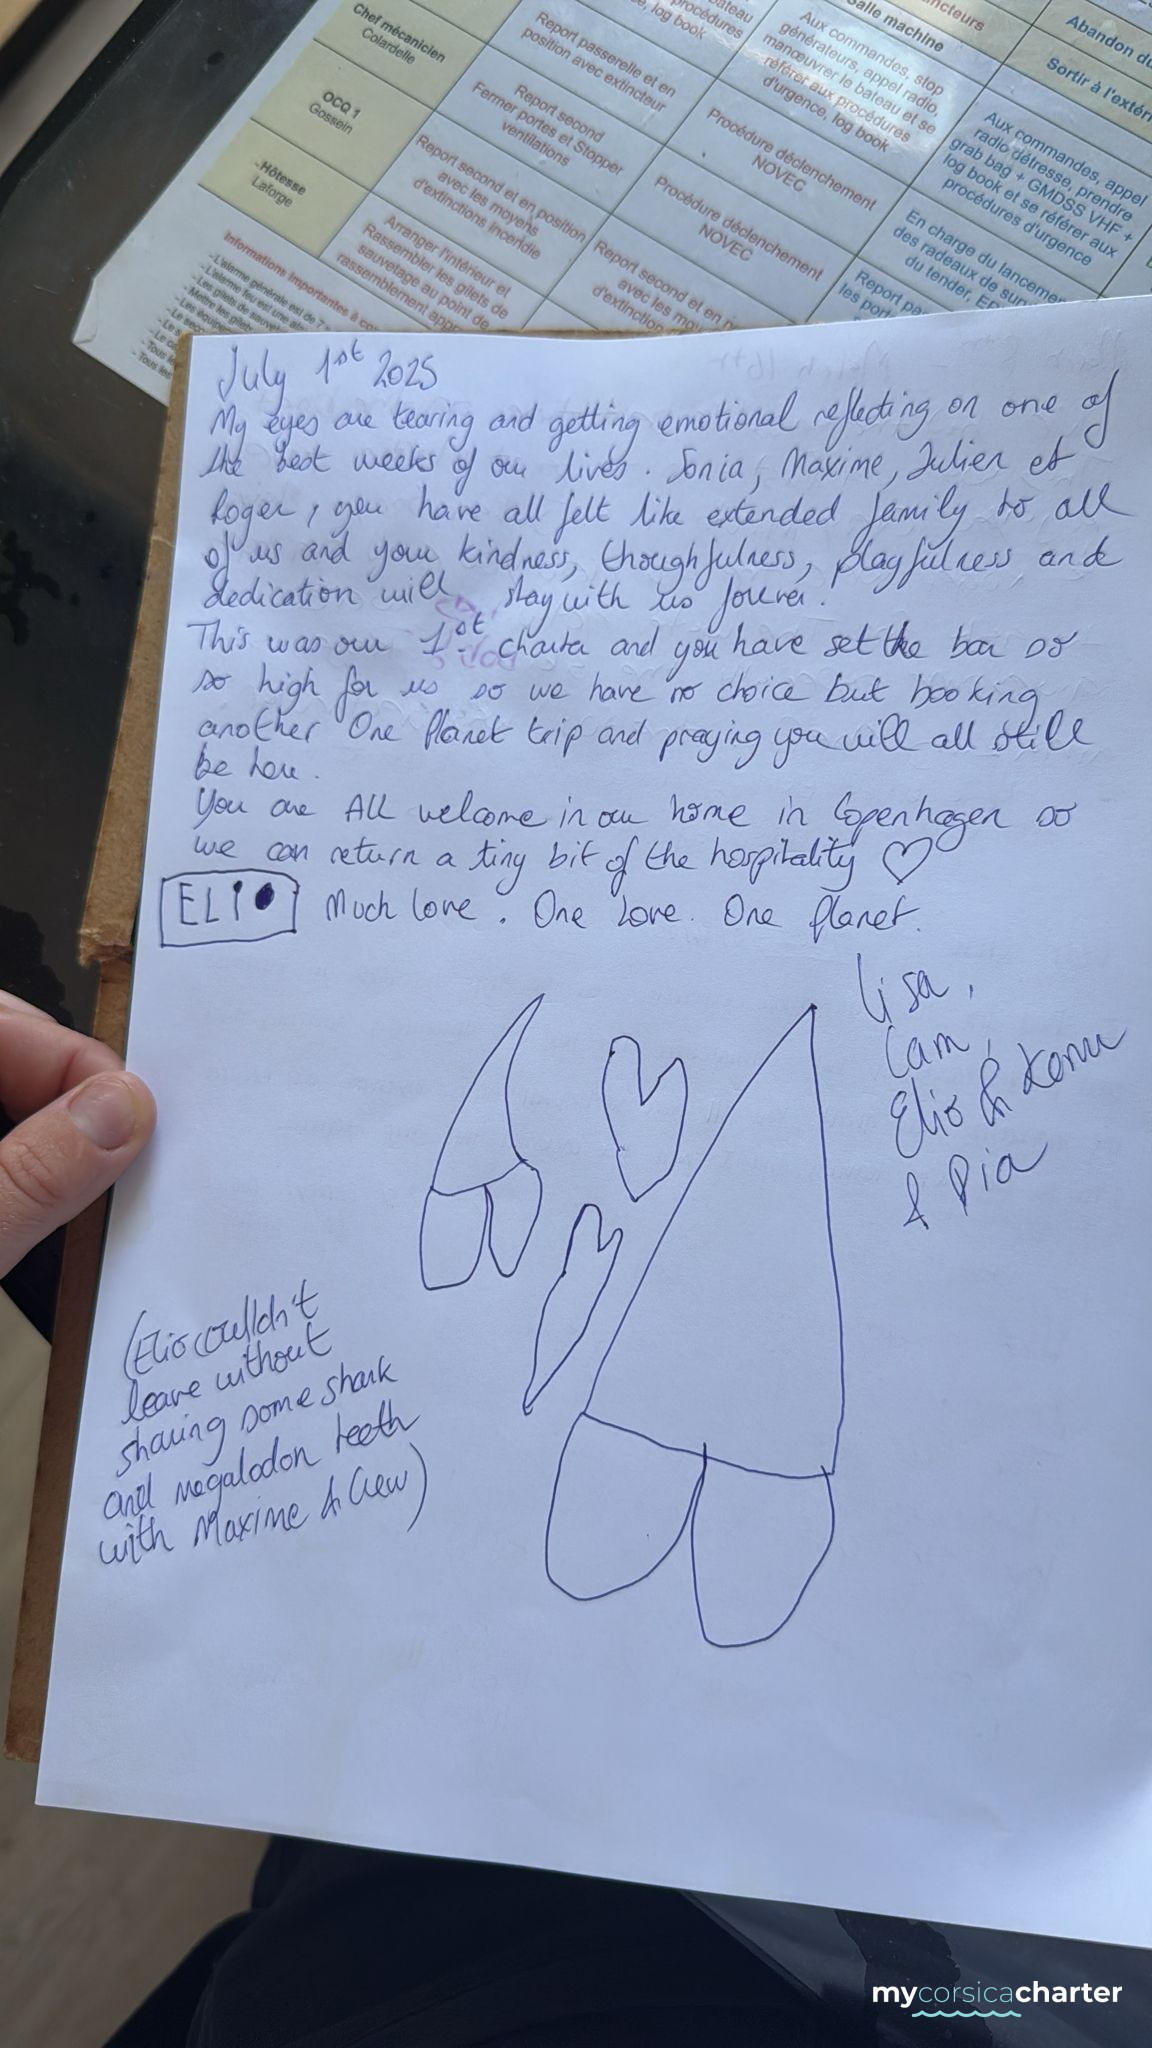 Chef mécanicien
Colardelle
Report passerelle et en
position avec extincteur
procédures
log book
Aux commandes, stop
générateurs, appel radio,
manœuvrer le bateau et se
référer aux procédures
d'urgence, log book
Salle machine
Abandon du
Sortir à l'extéri
OCQ 1
Gossein
Report second
Fermer portes et Stopper
ventilations
Procédure déclenchement
NOVEC
Aux commandes, appel
radio détresse, prendre
grab bag + GMDSS VHF +
log book et se référer aux
procédures d'urgence
Hôtesse
Laforge
Report second et en position
avec les moyens
d'extinctions incendie
Procédure déclenchement
NOVEC
En charge du lancemen
des radeaux de surv
du tender,
Arranger l'intérieur et
Rassembler les gilets de
sauvetage au point de
rassemblement
Report second et en
avec les
d'extinction
Report
les
Informations Importantes à
-L'alarme générale est de 7
July 1st 2025
My eyes are tearing and getting emotional reflecting on one of
the best weeks of our lives. Sonia, Maxime, Julien et
Roger, you have all felt like extended family to all
of us and your kindness, thoughfulness, playfulness and
dedication will stay with us forever.
This was our 1st charter and you have set the bar so
so high for us so we have no choice but booking
another One Planet trip and praying you will all still
be here.
You are ALL welcome in our home in Copenhagen so
we can return a tiny bit of the hospitality
ELIO Much love. One Love. One Planet.
Lisa,
Cam,
Elio &
& Pia
(Elio couldn't
leave without
sharing some shark
and megalodon teeth
with Maxime & Crew)
mycorsicacharter